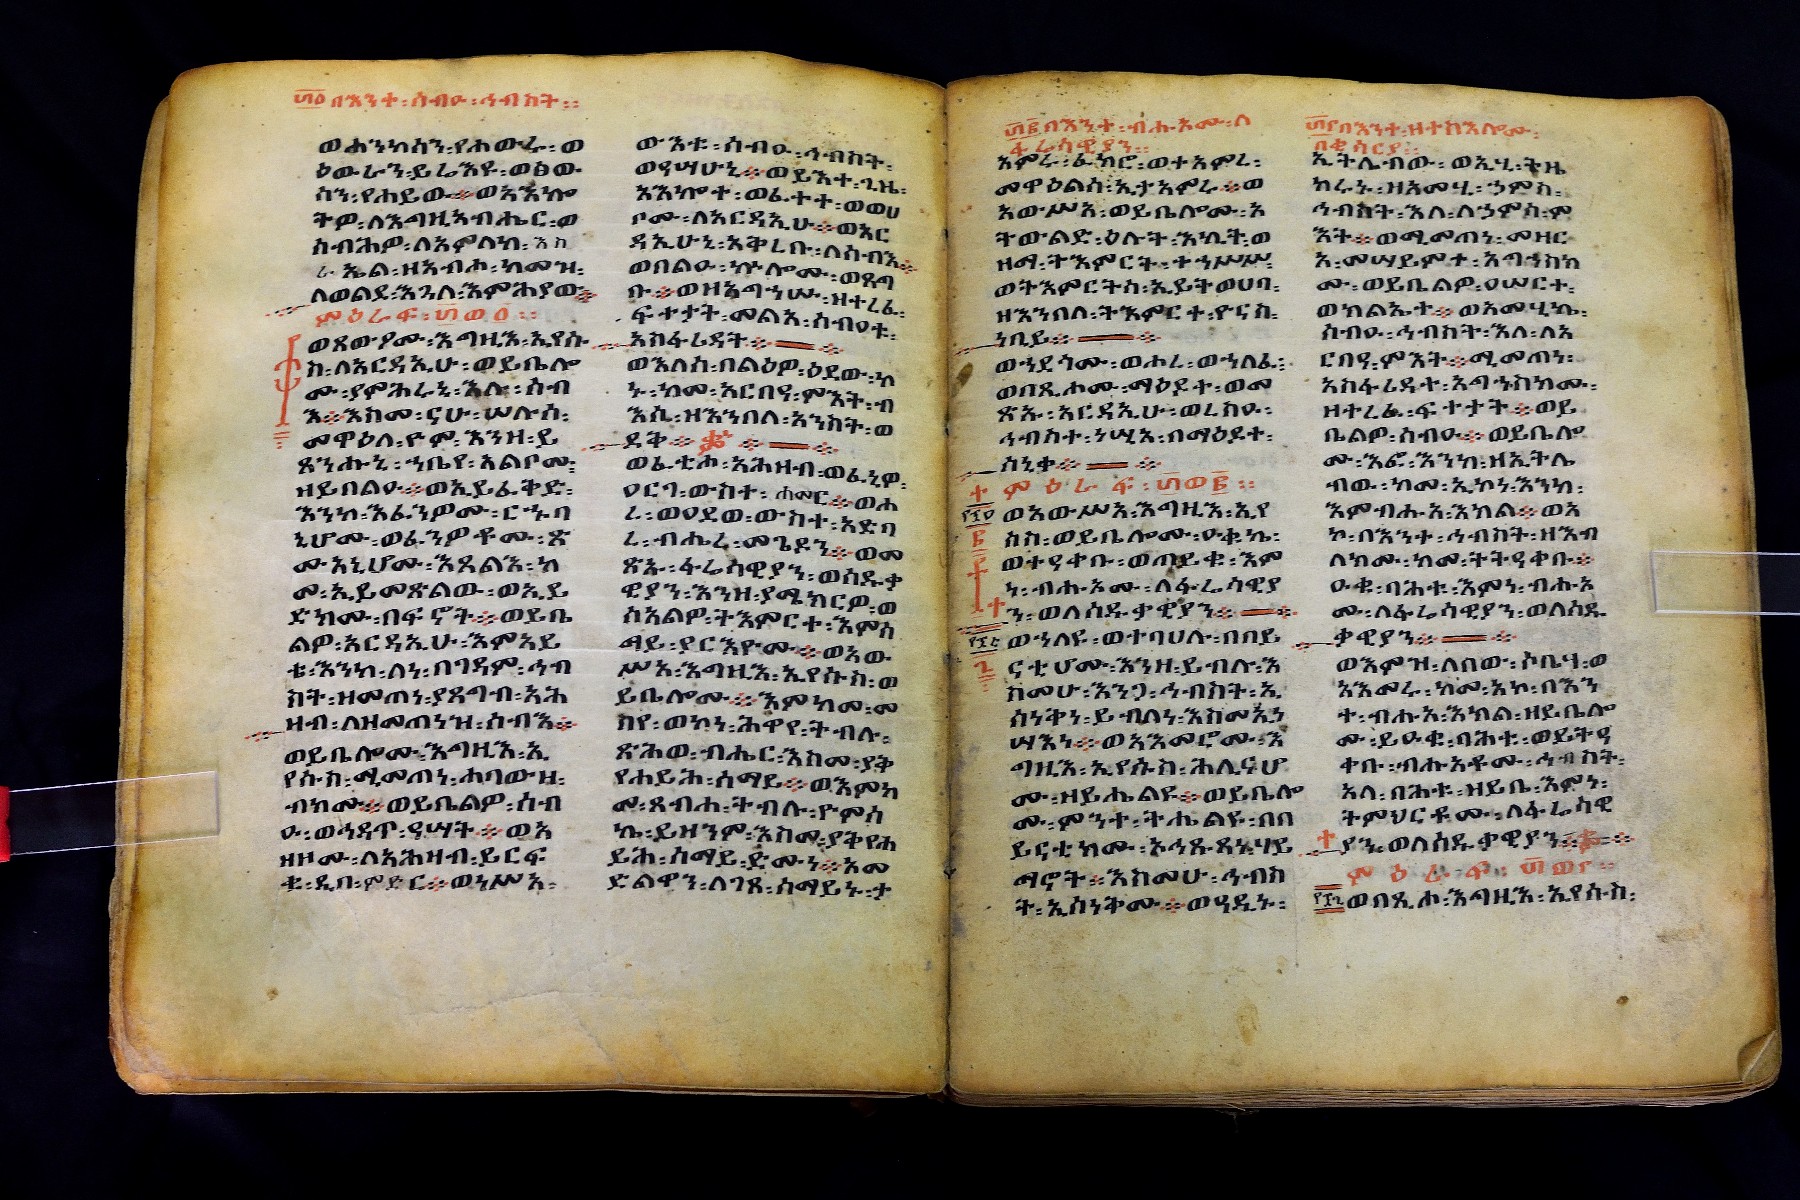 ፴፩በእንተ፡ሰብዑ፡ኅብስት።
ወሐንካሳን፡የሐውሩ፡ወ
ዕዉራን፡ይሬእዩ፡ወፅዉ
ሳን፡የሐይዉ፨ወአእኰ
ትዎ፡ለእግዚአብሔር፡ወ
ሰብሕዎ፡ለአምላከ፡እስ
ራኤል፡ዘአብሖ፡ከመዝ፡
ለወልደ፡እንለ፡እምሕያው፨
ምዕራፍ፡፴ወ፩።
ወጸውዖሙ፡እግዚእ፡ኢየሱ
ስ፡ለአርዳኢሁ፡ወይቤሎ
ሙ፡ያምሕሩኒ፡እሉ፡ሰብ
እ፨እስመ፡ናሁ፡ሠሉሰ፡
መዋዕለ፡ዮም፡እንዘ፡ይ
ጸንሑኒ፡ኀቤየ፡አልቦሙ፡
ዘይበልዑ፨ወኢይፈቅድ፡
እንከ፡እፈንዎሙ፡ርኁባ
ኒሆሙ፡ወፈንዎቶሙ፡ጽ
ሙአኒሆሙ፡እጸልእ፡ከ
መ፡ኢይመጽልው፡ወኢይ
ድክሙ፡በፍኖት፨ወይቤ
ልዎ፡አርዳኢሁ፡እምአይ
ቴ፡እንከ፡ለነ፡በገዳም፡ኅብ
ስት፡ዘመጠነ፡ያጸግብ፡አሕ
ዛብ፡ለዘመጠነዝ፡ሰብእ፨
ወይቤሎሙ፡እግዚእ፡ኢ
የሱስ፡ሚመጠነ፡ሐባውዘ፡
ብክሙ፨ወይቤልዎ፡ሰብ
ዑ፡ወኅዳጥ፡ዓሣት፨ወአ
ዘዞሙ፡ለአሕዛብ፡ይርፍ
ቁ፡ዲበ፡ምድር፨ወነሥአ፡
ውእቱ፡ሰብዑ፡ኅብስት፡
ወዓሣሁኒ፨ወይእተ፡ጊዜ፡
አእኰተ፡ወፈተተ፡ወወሀ
ቦሙ፡ለአርዳኢሁ፨ወአር
ዳኢሁኒ፡አቅረቡ፡ለሰብእ፨
ወበልዑ፡ኵሎሙ፡ወጸግ
ቡ፨ወዘአግኀሡ፡ዘተረፈ፡
ፍተታት፡መልአ፡ሰብዐተ፡
አስፋሪዳት፨
ወእለሰ፡በልዕዎ፡ዕደው፡ኮ
ኑ፡ከመ፡አርበዓ፡ምእት፡ብ
እሲ፡ዘእንበለ፡አንስት፡ወ
ደቅ፨
ወፈቲሖ፡አሕዛብ፡ወፈኒዎ፡
ዐርገ፡ውስተ፡ሐመር፨ወሖ
ረ፡ወዐደወ፡ውስተ፡አድባ
ረ፡ብሔረ፡መጌዶን፨ወመ
ጽኡ፡ፋሬሳዊያን፡ወሰዱቃ
ዊያን፡እንዘ፡ያሜክርዎ፡ወ
ሰአልዎ፡ትእምርተ፡እምሰ
ማይ፡ያርእዮሙ፨ወአው
ሥአ፡እግዚእ፡ኢየሱስ፡ወ
ይቤሎሙ፨እምከመ፡መ
ስየ፡ወኮነ፡ሕዋየ፡ትብሉ፡
ጽሕወ፡ብሔር፡እስመ፡ያቅ
የሐይሕ፡ሰማይ፨ወእምከ
መ፡ጸብሐ፡ትብሉ፡ዮምሰ
ኬ፡ይዘንም፡እስመ፡ያቅየሐ
ይሕ፡ሰማይ፡ድሙን፨አመ
ድልዋን፡ለገጸ፡ሰማይኑ፡ታ
፴፪በእንተ፡ብሑአሙ፡ለ
ፋሬሳዊያን።
አምሩ፡ፈክሮ፡ወተአምረ፡
መዋዕልሰ፡ኢታአምሩ፨ወ
አውሥአ፡ወይቤሎሙ፡አ
ትውልድ፡ዕሉት፡እኪት፡ወ
ዘማ፡ትእምርት፡ተኀሥሥ፡
ወትእምርትሰ፡ኢይትወሀባ፡
ዘእንበለ፡ትእምርተ፡ዮናስ፡
ነቢይ፨
ወኀደጎሙ፡ወሖረ፡ወኀለፈ፡
ወበጺሖሙ፡ማዕዶተ፡ወመ
ጽኡ፡አርዳኢሁ፡ወረስዑ፡
ኅብስተ፡ነሢአ፡በማዕደተ፡
ስኒቀ፨
ምዕራፍ፡፴ወ፪።
ወአውሥአ፡እግዚእ፡ኢየ
ሱስ፡ወይቤሎሙ፡ዑቁኬ፡
ወተዓቀቡ፡ወጠይቁ፡እም
ነ፡ብሑአሙ፡ለፋሬሳዊያ
ን፡ወለሰዱቃዊያን፨
ወኀለዩ፡ወተባሀሉ፡በበይ
ናቲሆሙ፡እንዘ፡ይብሉ፡እ
ስመሁ፡እንጋ፡ኅብስት፡ኢ
ሰነቅነ፡ይብለነ፡እስመአነ
ሣእነ፨ወአእመሮሙ፡እ
ግዚእ፡ኢየሱስ፡ሕሊናሆ
ሙ፡ዘይሔልዩ፨ወይቤሎ
ሙ፡ምንተ፡ትሔልዩ፡በበ
ይናቲክሙ፡ኦኅጹጻነሃይ
ማኖት፡እስመሁ፡ኅብስ
ት፡ኢሰነቅሙ፨ወዓዲኑ፡
ኢትሌብው፡ወኢሂ፡ትዜ
ከሩኑ፡ዘአመሂ፡ኃምስ፡
ኅብስት፡እለ፡ለኃምስ፡ም
እት፨ወሚመጠነ፡መዝር
አ፡መሣይምተ፡አግኀስክ
ሙ፡ወይቤልዎ፡ዐሠርተ፡
ወክልኤተ፨ወአመሂኬ፡
ሰብዑ፡ኅብስት፡እለ፡ለአ
ርበዓ፡ምእት፨ሚመጠነ፡
አስፋሪዳተ፡አግኀስክሙ፡
ዘተረፈ፡ፍተታት፨ወይ
ቤልዎ፡ሰብዑ፨ወይቤሎ
ሙ፡እፎ፡እንከ፡ዘኢትሌ
ብው፡ከመ፡ኢኮነ፡እንከ፡
እምብሑአ፡እክል፨ወአ
ኮ፡በእንተ፡ኅብስት፡ዘእብ
ለክሙ፡ከመ፡ትትዓቀቡ፨
ዑቁ፡ባሕቱ፡እምነ፡ብሑአ
ሙ፡ለፋሬሳዊያን፡ወለሰዱ
ቃዊያን፨
ወእምዝ፡ለበው፡ሶቤሃ፡ወ
አእመሩ፡ከመ፡አኮ፡በእን
ተ፡ብሑአ፡እክል፡ዘይቤሎ
ሙ፡ይዑቁ፡ባሕቱ፡ወይትዓ
ቀቡ፡ብሑአቶሙ፡ኅብስት፡
አላ፡በሕቱ፡ዘይቤ፡እምነ፡
ትምህርቶሙ፡ለፋሬሳዊ
ያን፡ወለሰዱቃዊያን፨
ምዕራፍ፡፴ወ፫።
ወበጺሖ፡እግዚእ፡ኢየሱስ፡